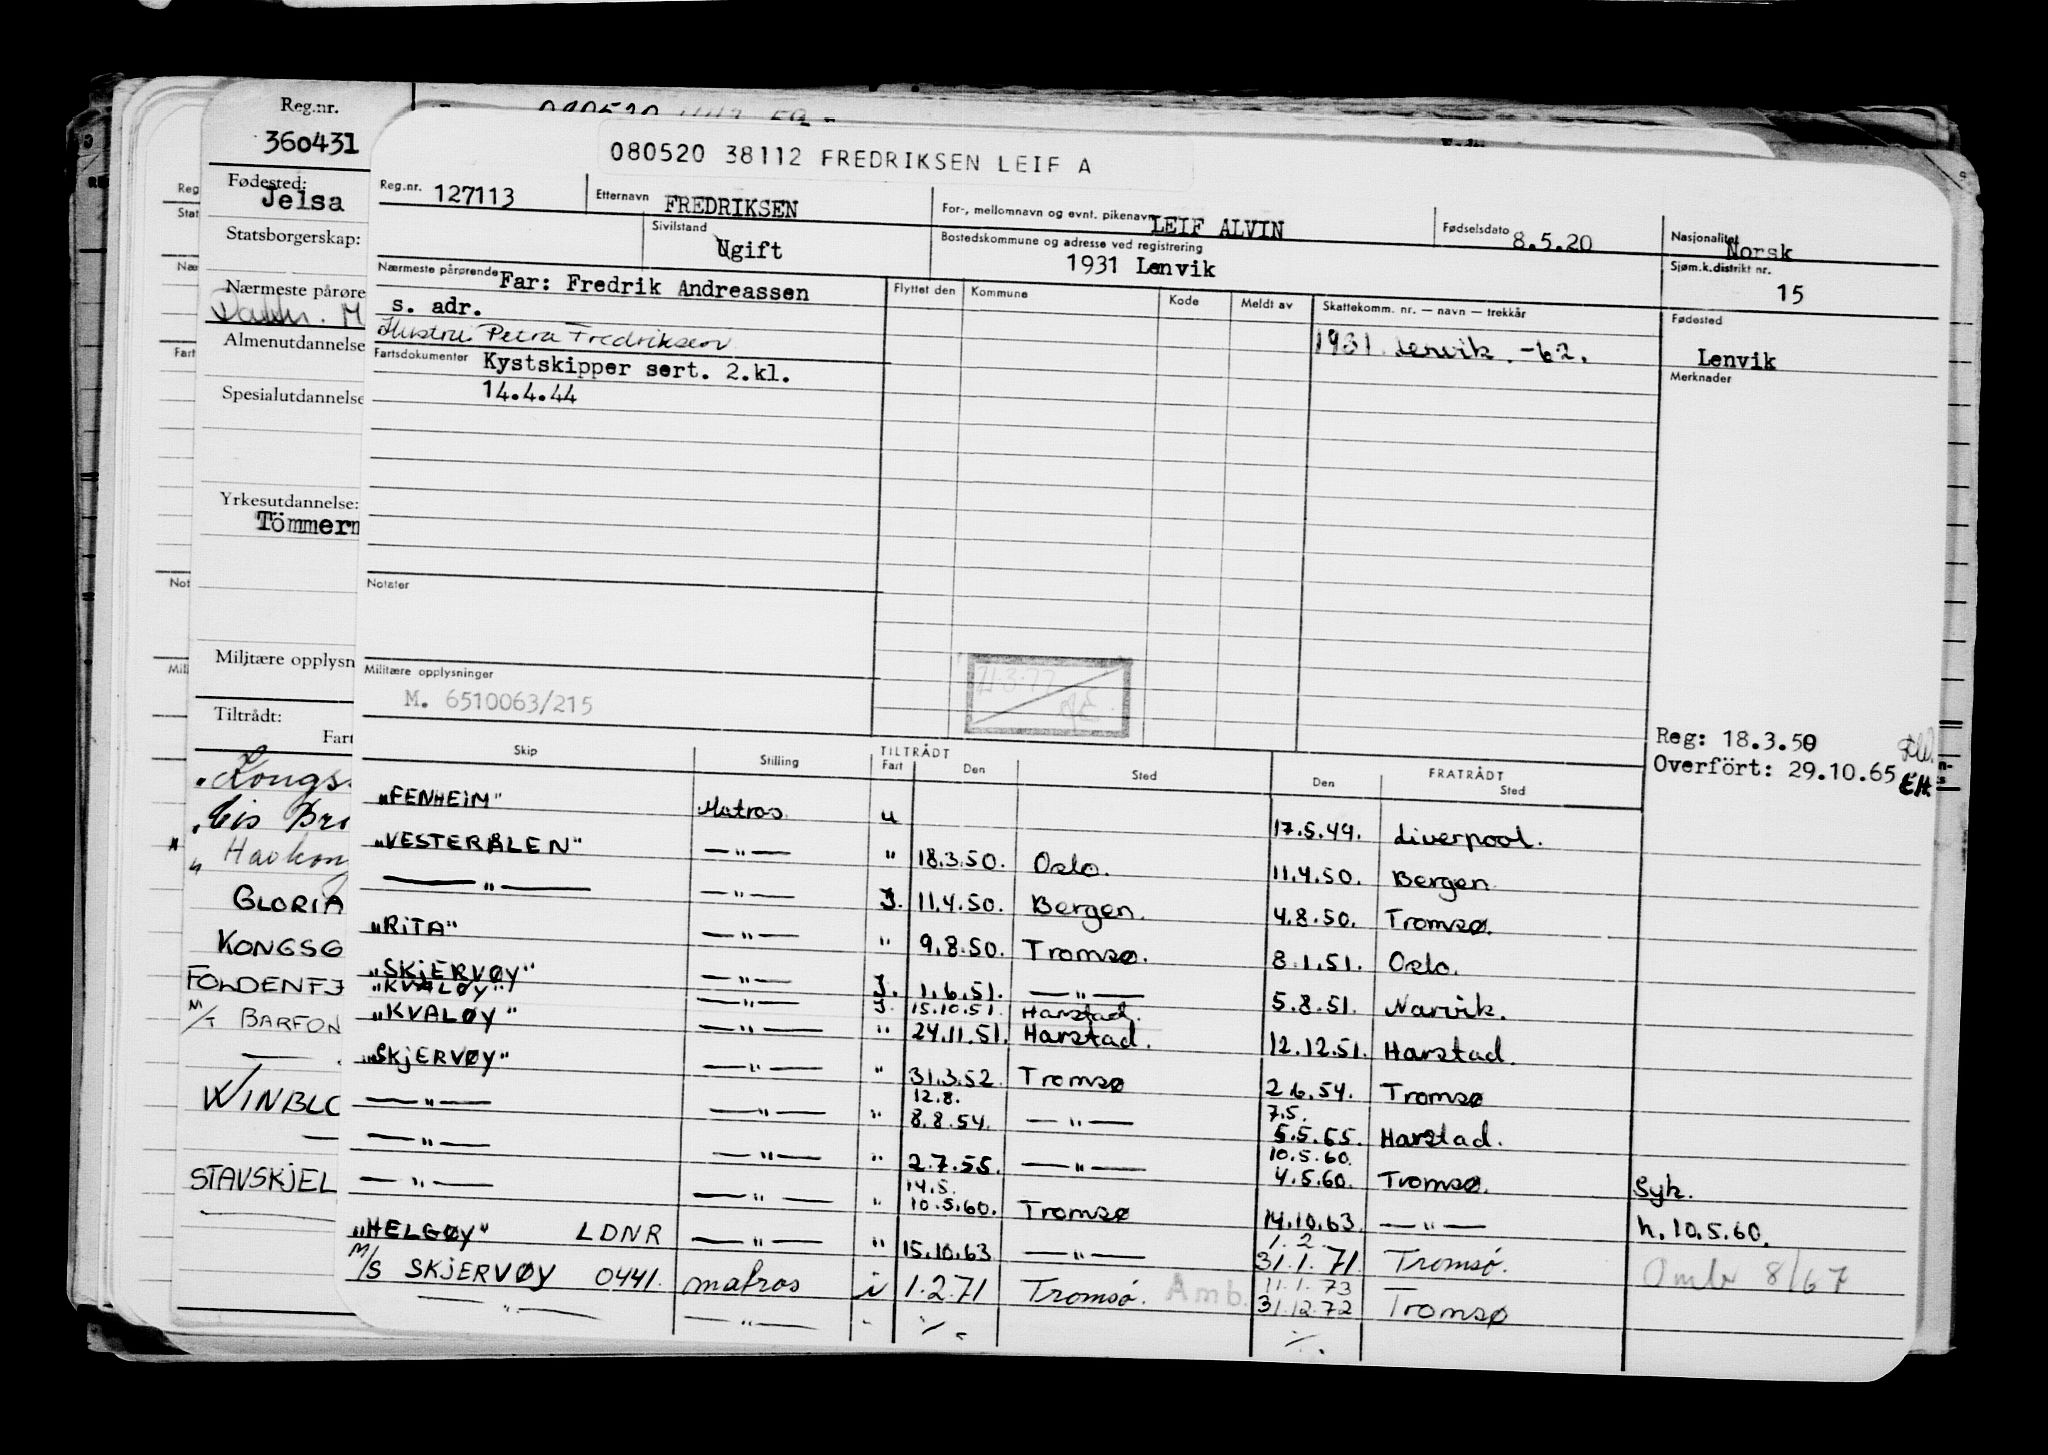 Reg.nr.
360431
Fødested:
Jelsa
Statsborgerskap:
Nærmeste pårøre
Almenutdannelse
Spesialutdannelse
Yrkesutdannelse:
Tömmerm
Militære opplysn
Tiltrådt:
Fart
Kongs
GLORIA
KONGSG
FOLDENFJ
M/T BARFON
WINBLO
STAVSKJEL
080520 38112 FREDRIKSEN LEIF A
Reg.nr. 127113 Etternavn FREDRIKSEN For-, mellomnavn og evnt. pikenavn LEIF ALVIN Fødselsdato 8.5.20 Nasjonalitet Norsk
Sivilstand Ugift Bostedskommune og adresse ved registrering 1931 Lenvik Sjøm.k.distrikt nr. 15
Nærmeste pårørende Far: Fredrik Andreassen Flyttet den Kommune Kode Meldt av Skattekomm. nr. — navn — trekkår Fødested
s. adr.
Hustru Petra Fredriksen 1931. Lenvik. -62. Lenvik
Fartsdokumenter Kystskipper sert. 2.kl. Merknader
14.4.44
Notater
Militære opplysninger
M. 6510063/215
21.3.77
Reg: 18.3.50
Overfört: 29.10.65 EH
Skip Stilling TILTRÅDT Fart Den Sted FRATRÅDT Den Sted
"FENHEIM" Matros u 17.5.49. Liverpool.
"VESTERÅLEN" —"— " 18.3.50. Oslo. 11.4.50. Bergen
—"— —"— J. 11.4.50. Bergen. 4.8.50. Tromsø.
"RITA" —"— " 9.8.50. Tromsø. 8.1.51. Oslo.
"SKJERVØY" —"— J. 1.6.51. —"— 5.8.51. Narvik.
"KVALØY" —"— J. 15.10.51. Harstad.
"KVALØY" —"— " 24.11.51. Harstad. 12.12.51. Harstad.
"SKJERVØY" —"— " 31.3.52. Tromsø 2.6.54. Tromsø
12.8. 7.5.
—"— —"— " 8.8.54. —"— 5.5.55. Harstad.
10.5.60.
—"— —"— " 2.7.55. —"— 4.5.60. Tromsø. Syk.
14.5.
—"— —"— " 10.5.60. Tromsø 14.10.63. —"— h. 10.5.60.
1.2.
"HELGØY" LDNR —"— " 15.10.63 —"— 31.1.71 Tromsø. Omb 8/67
11.1.73
M/S SKJERVØY 0441. matros i 1.2.71 Tromsø. Amb. 31.12.72 Tromsø
—"— —"— " ·/. ·/.